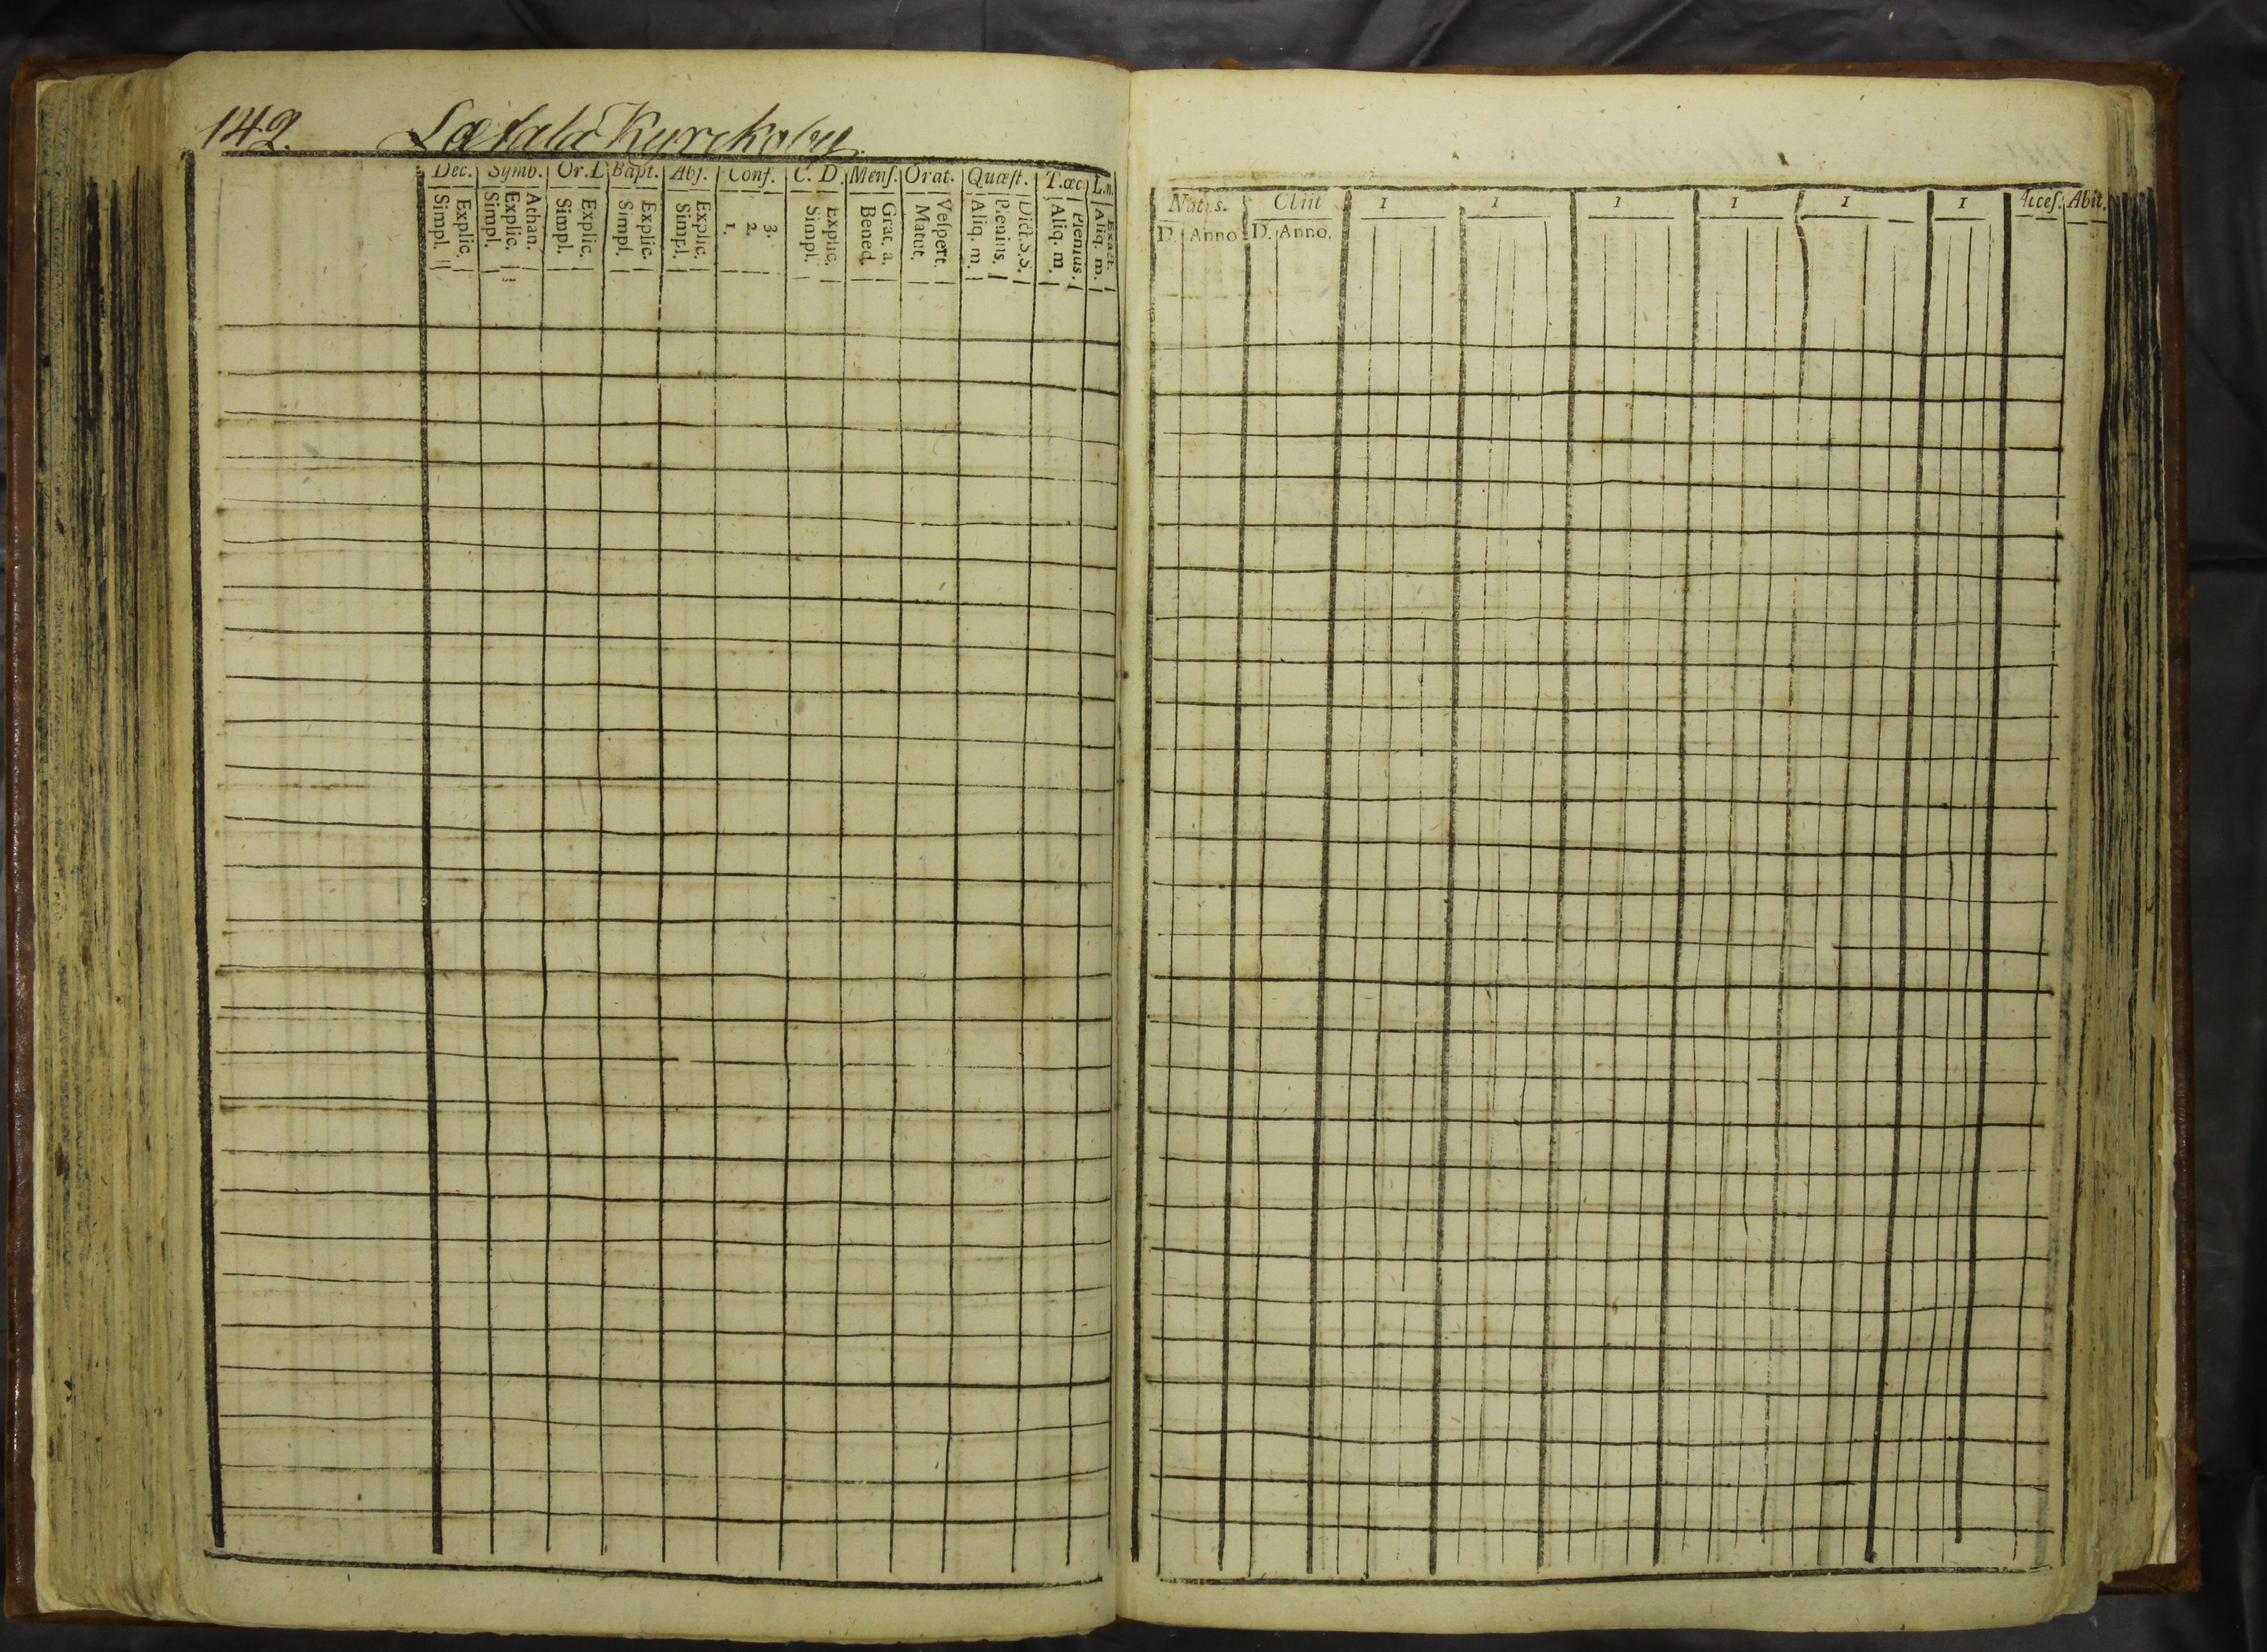 142. Lætala Kyrckoby.
Dec. Symb. Or. D Bapt. Abs. Conf. C. D. Menſ. Orat. Quæſt. T. œc. L. n.
Simpl. Explic. Simpl. Explic. Athan. Simpl. Explic. Simpl. Explic. Simpl. Explic. 1. 2. 3. Simpl. Explic. Bened. Grat. a. Matut. Veſpert. Aliq. m. Plenius. Dict. S. S. Aliq. m. Plenius. Aliq. m. Exact.
Natus. 1 1 1 1 1 1 Acceſ. Abit.
D. Anno D. Anno.